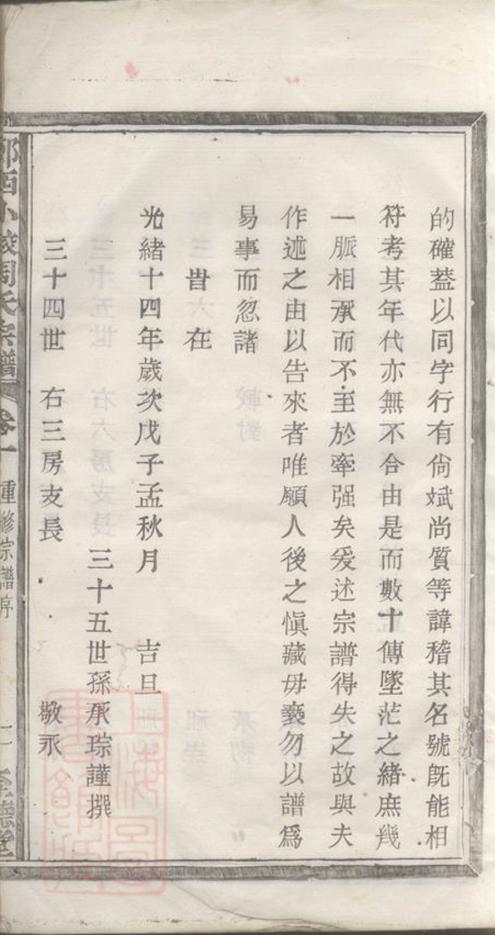 的確葢以同字行有尙斌尚質等諱稽其名號旣能相
符考其年代亦無不合由是而數十傳墜茫之緒庶幾
一脈相承而不至於牽强矣爰述宗譜得失之故與夫
作述之由以吿來者唯願人後之愼藏毋褻勿以譜爲
易事而忽諸
旹在
光緒十四年歲次戊子孟秋月 吉旦
三十五世孫承琮謹撰
三十四世 右三房支長 敬永
西小菱周氏宗譜 卷一 重修宗譜序 二 至德堂